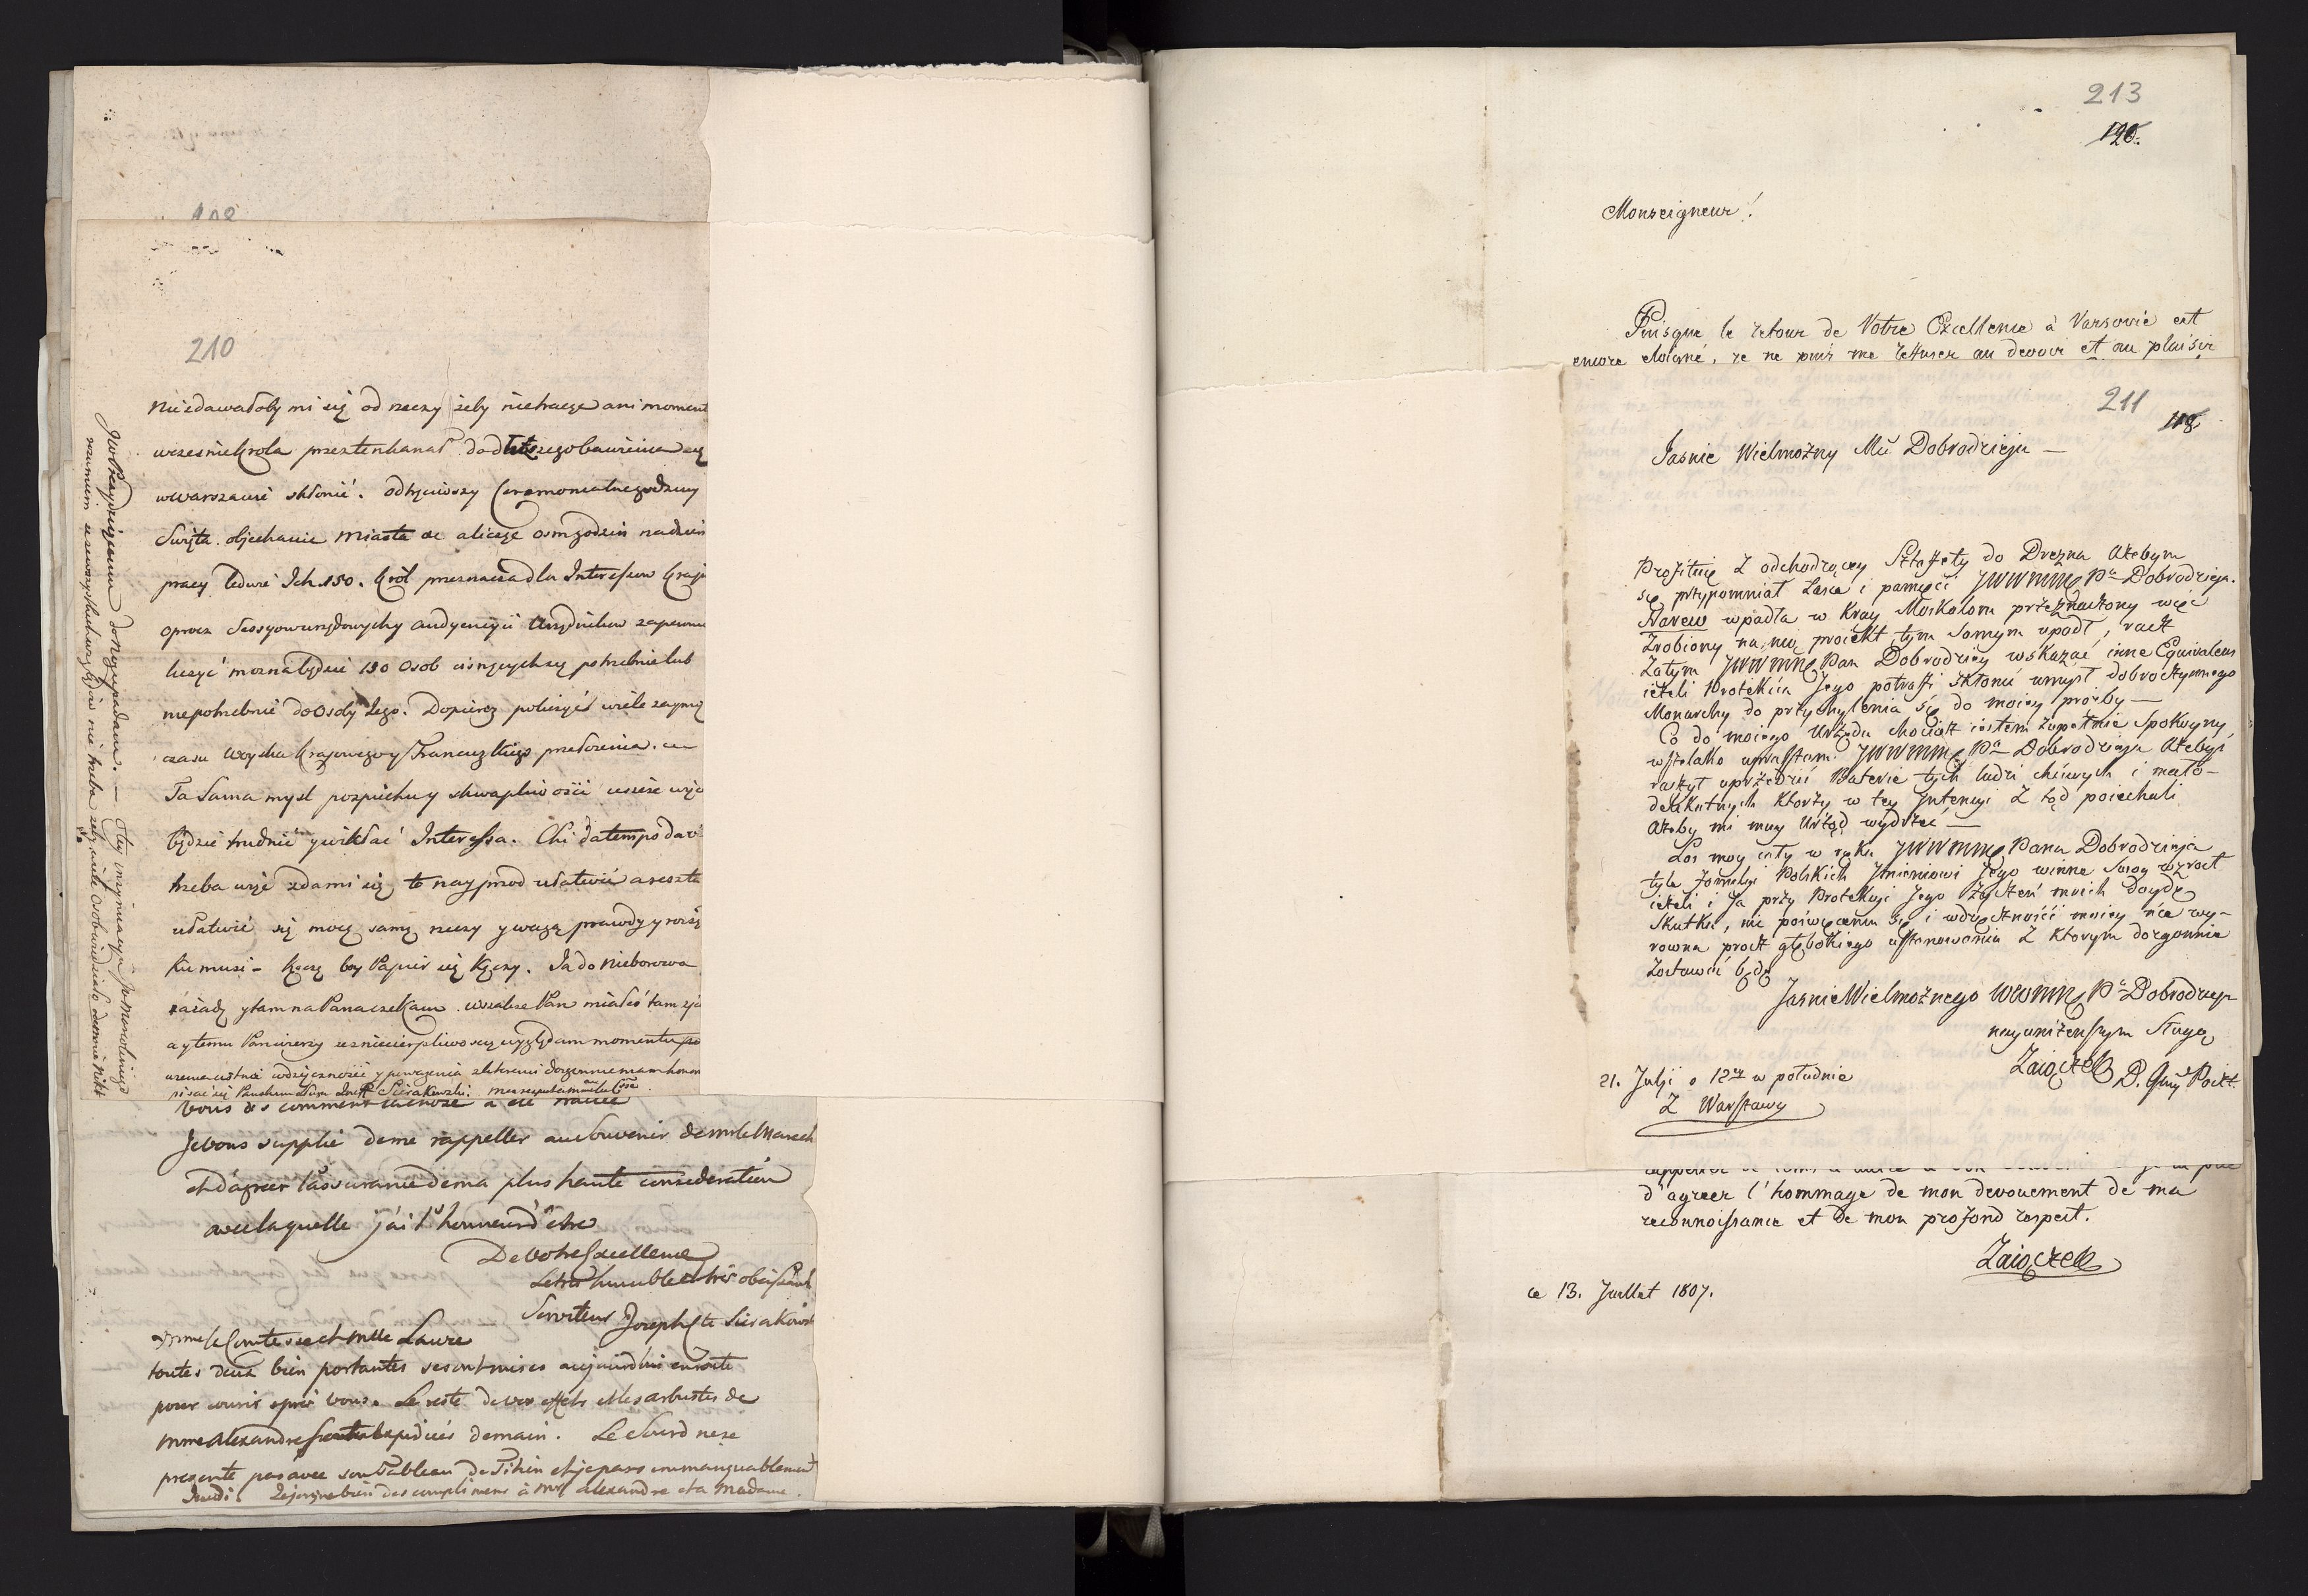 108
210
niezdawałoby mi się od rzeczy żeby nietracąc ani moment
wcześnie Króla przeztenkanał do dłuższego bawienia się
w Warszawie skłonić. odtrąciwszy Ceremonialnegodziny
Święta objechanie Miasta &c a licząc osm godzin na dzień
pracy ledwie Ich 150. Król przeznacza dla Interessow Kraju
oprocz Sessyow urzędowych y audyencyii Urzędnikow zapewne
liczyć można będzie 150 Osob cisnących się potrzebnie lub
niepotrzebnie do Osoby Jego. Dopieroż policzyć wiele zaymą
czasu Woyska Krajowego y Francuzkiego przełożenia.
Ta Sama mysl pospiechu y skwapliwości
będzie trudnić y wikłać Interessa. Chi da tempo da
trzeba więc zdami się to nayprzod ułatwić a reszta
ułatwić się mocą samą rzeczy y wagą prawdy y
Ku musi - Kończę boy Papier się Kończy. Ja do Nieborowa
y tam na Pana czekam.
a y temu Pan wierzy z niecierpliwoscią wyglądam momentu
wdzięczności y poważenia z ktoremi dozgonnie mam honor
pisać się Sierakowski.
JWPodkomorzynie do nog upadam. —
rozumiem ze wszystkich względow nie trzeba żeby wiele osob wiedziało o
vous
Je vous supplie de me rappeller au Souvenir de Mr le Marech
et d'agreer l'assurance de ma plus haute consideration
avec laquelle j'ai l'honneur d'etre
De votre Excellence
Le tres humble et tres obeissant
Serviteur Joseph Cte Sierakows
Mme la Comtesse et Mlle Laure
toutes deux bien portantes se sont mises aujourdhui en route
pour courir apres vous. Le reste de vos effets et les arbustes de
Mme Alexandre seront expediées demain. Le Sourd ne se
presente pas avec son Tableau de Titien et je pars immanquablement
Jeudi. Je joins bien des complimens à Mr Alexandre et a Madame.
213
120.
Monseigneur!
Puisque le retour de Votre Excellence à Varsovie est
encore eloigné, je ne puis me refuser au devoir et au plaisir
211
118
Jasnie Wielmożny Mći Dobrodzieju —
Profituię z odchodzącey Sztaffety do Drezna ażebym
się przypomniał Łasce i pamięci JWWMMq Pa Dobrodzieja.
Narew wpadła w Kray Moskalom przeznaczony więc
zrobiony na nią proiekt tym samym upadł, racz
zatym JWWMMq Pan Dobrodziey wskazać inne Equivalens
ieżeli Protekcia Jego potrafi skłonić umysł dobroczynnego
Monarchy do przychylenia się do moiey prośby —
Co do moiego Urzędu chociaż iestem zupełnie spokoyny
wszelako upraszam JWWMMq Pa Dobrodzieja ażebyś
raczył uprzedzić Baterie tych ludzi chciwych i mało-
delikatnych ktorzy w tey Intencyi z tąd poiechali
ażeby mi moy Urząd wydrzeć —
Los moy cały w ręku JWWMMq Pana Dobrodzieja
tyle Familyi Polskich Imieniowi Jego winne Swoy wzrost
ieżeli i Ja przy Protekcyi Jego życzeń moich doydę
skutku, nic poswięceniu się i wdzięczności moiey nie wy-
rowna procz głębokiego uszanowania z ktorym dozgonnie
zostawać będę
Jasnie Wielmożnego WWMMq Pa Dobrodzieja
nayuniżenszym Sługą
Zaiączek D. Gnl Poczt.
21. Julji o 12ey w południe
z Warszawy
d'agreer l'hommage de mon devouement de ma
reconnoissance et de mon profond respect.
Zaiączek
ce 13. Juillet 1807.